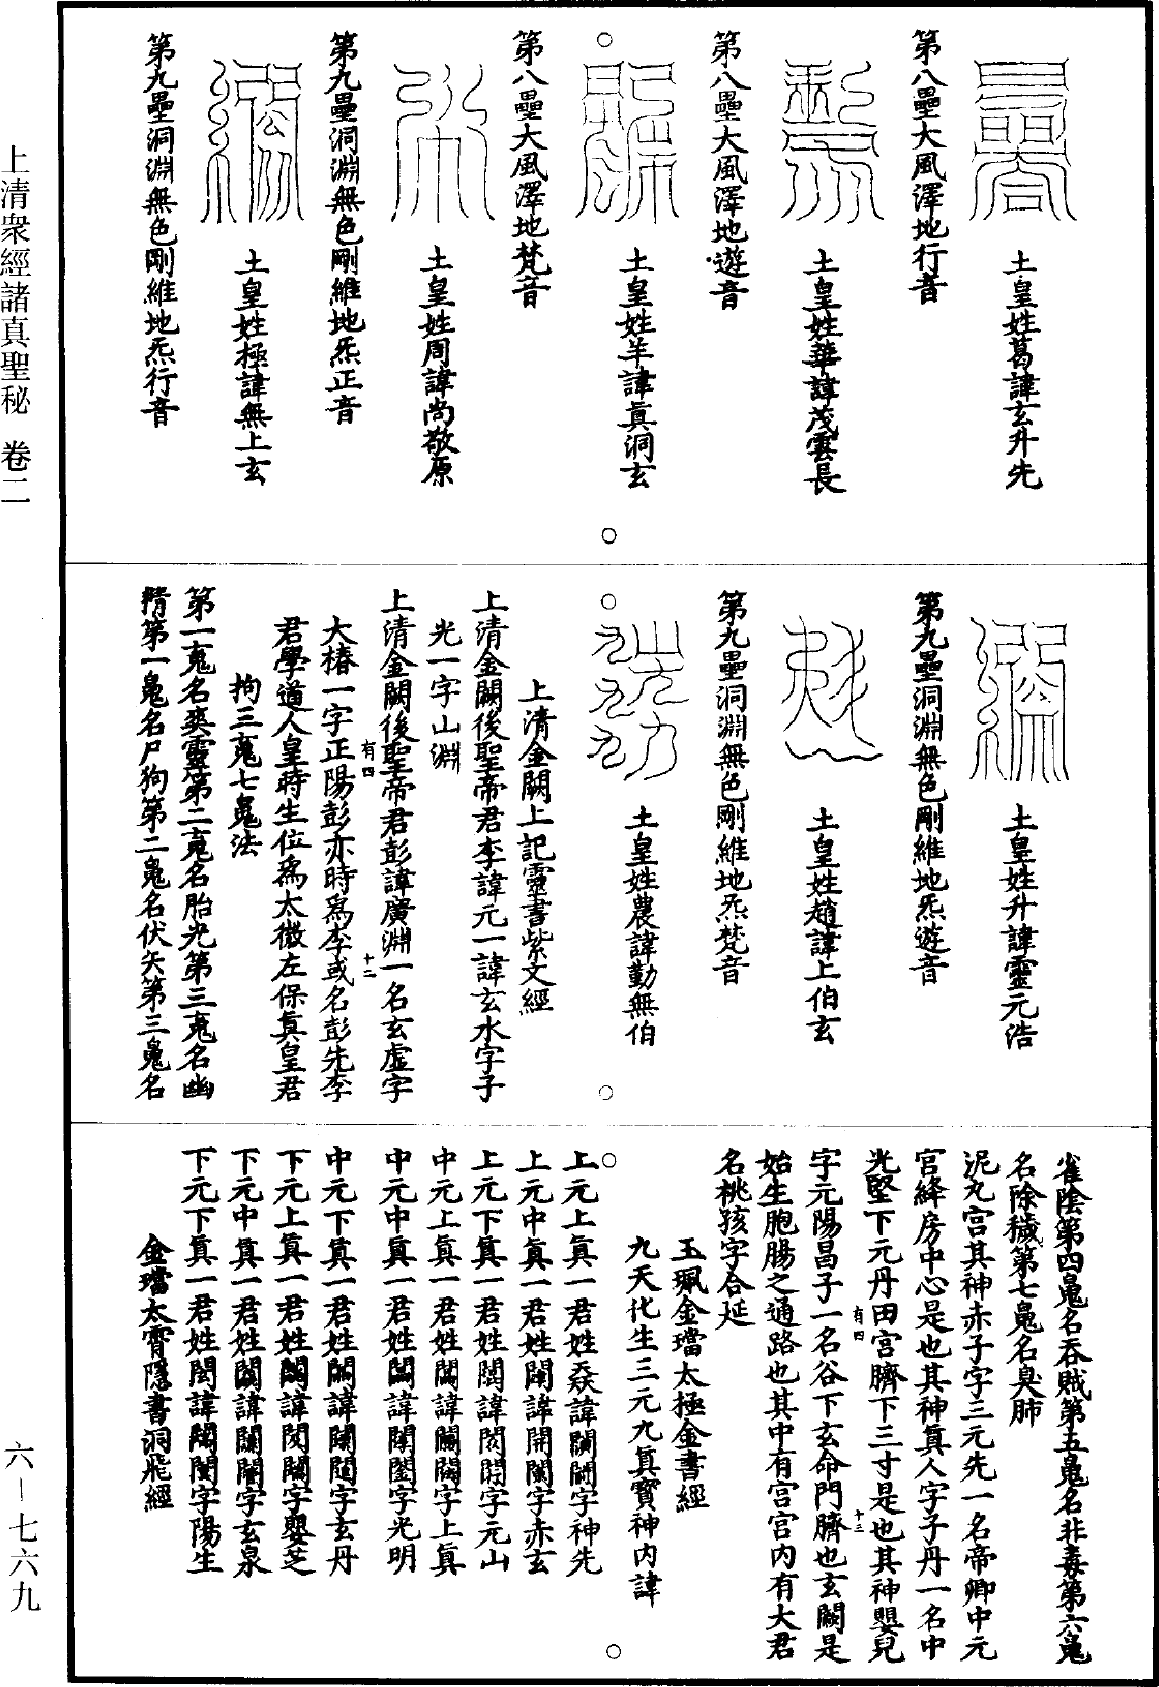 土皇姓葛諱玄升先
第八壘大風澤地行音
土皇姓華諱茂雲長
第八壘大風澤地遊音
土皇姓羊諱真洞玄
第八壘大風澤地梵音
土皇姓周諱尚敬原
第九壘洞淵無色剛維地炁正音
土皇姓極諱無上玄
第九壘洞淵無色剛維地炁行音
土皇姓升諱靈元浩
第九壘洞淵無色剛維地炁遊音
土皇姓趙諱上伯玄
第九壘洞淵無色剛維地炁梵音
土皇姓農諱勤無伯
上清金闕上記靈書紫文經
上清金闕後聖帝君李諱元一諱玄水字子
光一字山淵
上清金闕後聖帝君彭諱廣淵一名玄虛字
大椿一字正陽彭亦時爲李或名彭先李
有四 十二
君學道人皇時生位爲太微左保真皇君
拘三䰟七鬽法
第一䰟名爽靈第二䰟名胎光第三䰟名幽
精第一鬽名尸狗第二鬽名伏矢第三鬽名
雀陰第四鬽名吞賊第五鬽名非毒第六鬽
名除穢第七鬽名臭肺
泥丸宮其神赤子字三元先一名帝卿中元
宮絳房中心是也其神真人字子丹一名中
光堅下元丹田宮臍下三寸是也其神嬰兒
有四 十三
字元陽昌子一名谷下玄命門臍也玄闕是
始生胞腸之通路也其中有宮宮內有大君
名桃孩字合延
玉珮金璫太極金書經
九天化生三元九真寳神內諱
上元上真一君姓 諱 字神先
上元中真一君姓 諱開 字赤玄
上元下真一君姓 諱 字元山
中元上真一君姓 諱 字上真
中元中真一君姓 諱 字光明
中元下真一君姓 諱 字玄丹
下元上真一君姓 諱 字嬰芝
下元中真一君姓 諱 字玄泉
下元下真一君姓 諱 字陽生
金璫太霄隱書洞飛經
上清衆經諸真聖秘 卷二
六—七六九